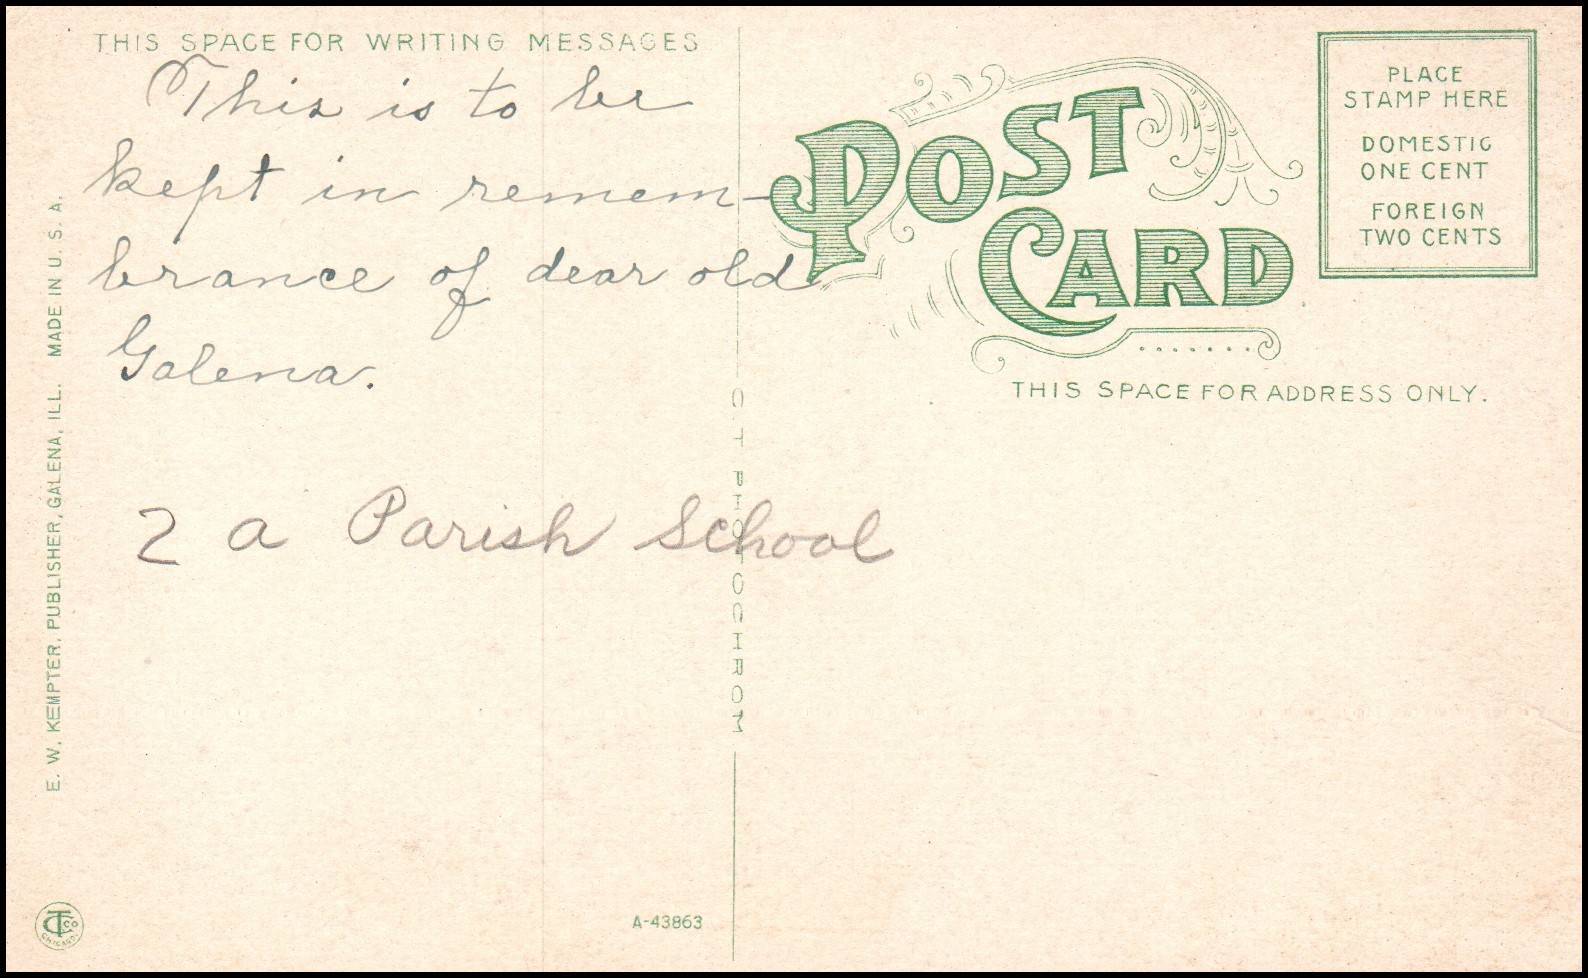 THIS SPACE FOR WRITING MESSAGES
This is to be
kept in remem-
brance of dear old
Galena.
2 a Parish School
E. W. KEMPTER, PUBLISHER, GALENA, ILL. MADE IN U. S. A.
CT PHOTOCHROM
A-43863
CT CO
CHICAGO
POST
CARD
THIS SPACE FOR ADDRESS ONLY.
PLACE
STAMP HERE
DOMESTIC
ONE CENT
FOREIGN
TWO CENTS